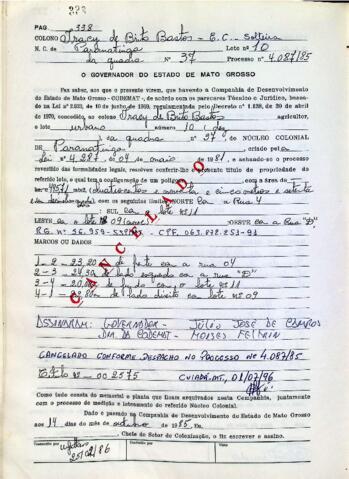 338
PAG 338
COLONO Iracy de Brito Bastos - E.C. - Solteira
N. C. de Paranatinga Lote nº 10
da quadra nº 37 Processo nº 4.087/85
O GOVERNADOR DO ESTADO DE MATO GROSSO
Faz saber, aos que o presente virem, que havendo a Companhia de Desenvolvimento
do Estado de Mato Grosso - CODEMAT -, de acôrdo com os pareceres Técnico e Jurídico, baseado
na Lei nº 2.023, de 10 de junho de 1969, regulamentada pelo Decreto nº 1.138, de 20 de abril
de 1970, concedido, ao colono Iracy de Brito Bastos agricultor,
o lote urbano número 10 (dez)
da quadra nº 37 do NÚCLEO COLONIAL
DE Paranatinga, criado pela
Lei nº 4.287, de 04 de maio de 1981, e achando-se o processo
revestido das formalidades legais, resolve conferir-lhe o presente título de propriedade do
referido lote, o qual tem a configuração de um polígono com a área de
limites: NORTE com a Rua 4
SUL com o lote nº 11
LESTE com o lote nº 09 OESTE com a Rua "D"
MARCOS OU DADOS
1 - 2 - 23,20 de frente com a rua 04
com a rua "D"
3 - 4 - 20,00 de fundo com o lote nº 11
lado direito com lote nº 09
CANCELADO
ASSINARAM: GOVERNADOR - JÚLIO JOSÉ DE CAMPOS
DIR. DA CODEMAT - MOISÉS FELTRIN
CANCELADO CONFORME DESPACHO NO PROCESSO Nº 4.087/85
00 2575 CUIABÁ, MT, 01/07/96
Como tudo consta do memorial e planta que ficam arquivados nesta Companhia, juntamente
com o processo de medição e loteamento do referido Núcleo Colonial.
Dado e passado na Companhia de Desenvolvimento do Estado de Mato Grosso
aos 14 dias do mês de outubro de 1985. Eu,
Chefe do Setor de Colonização, o fiz escrever e assino.
Transcrito por
25/02/86